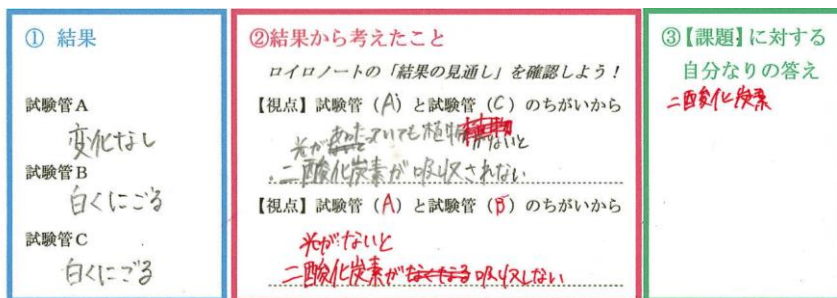 ① 結果
試験管A
変化なし
試験管B
白くにごる
試験管C
白くにごる
②結果から考えたこと
ロイロノートの「結果の見通し」を確認しよう！
【視点】試験管（A）と試験管（C）のちがいから
光があたっていても植物がないと
二酸化炭素が吸収されない
【視点】試験管（A）と試験管（B）のちがいから
光がないと
二酸化炭素がなくなる吸収しない
③【課題】に対する
自分なりの答え
二酸化炭素